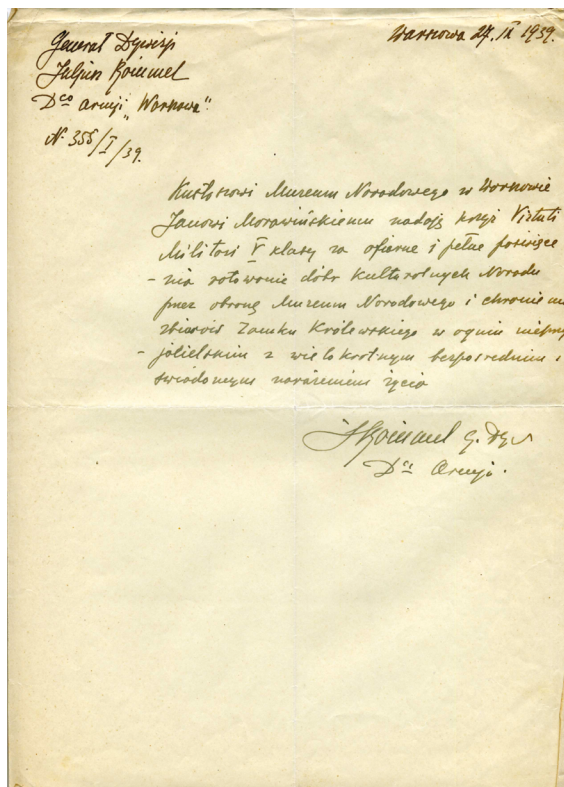 Generał Dywizji
Juljusz Rómmel
D-ca Armji „Warszawa"
N. 355/I/39.
Warszawa 24. IX 1939.
Kustoszowi Muzeum Narodowego w Warszawie
Janowi Morawińskiemu nadaję krzyż Virtuti
Militari V klasy za ofiarne i pełne poświęce
- nia ratowanie dóbr kulturalnych Narodu
przez obronę Muzeum Narodowego i chronienie
zbiorów Zamku Królewskiego w ogniu nieprzy
- jacielskim z wielokrotnym bezpośrednim i
świadomym narażeniem życia
JRómmel G. Dyw
D-ca Armji.